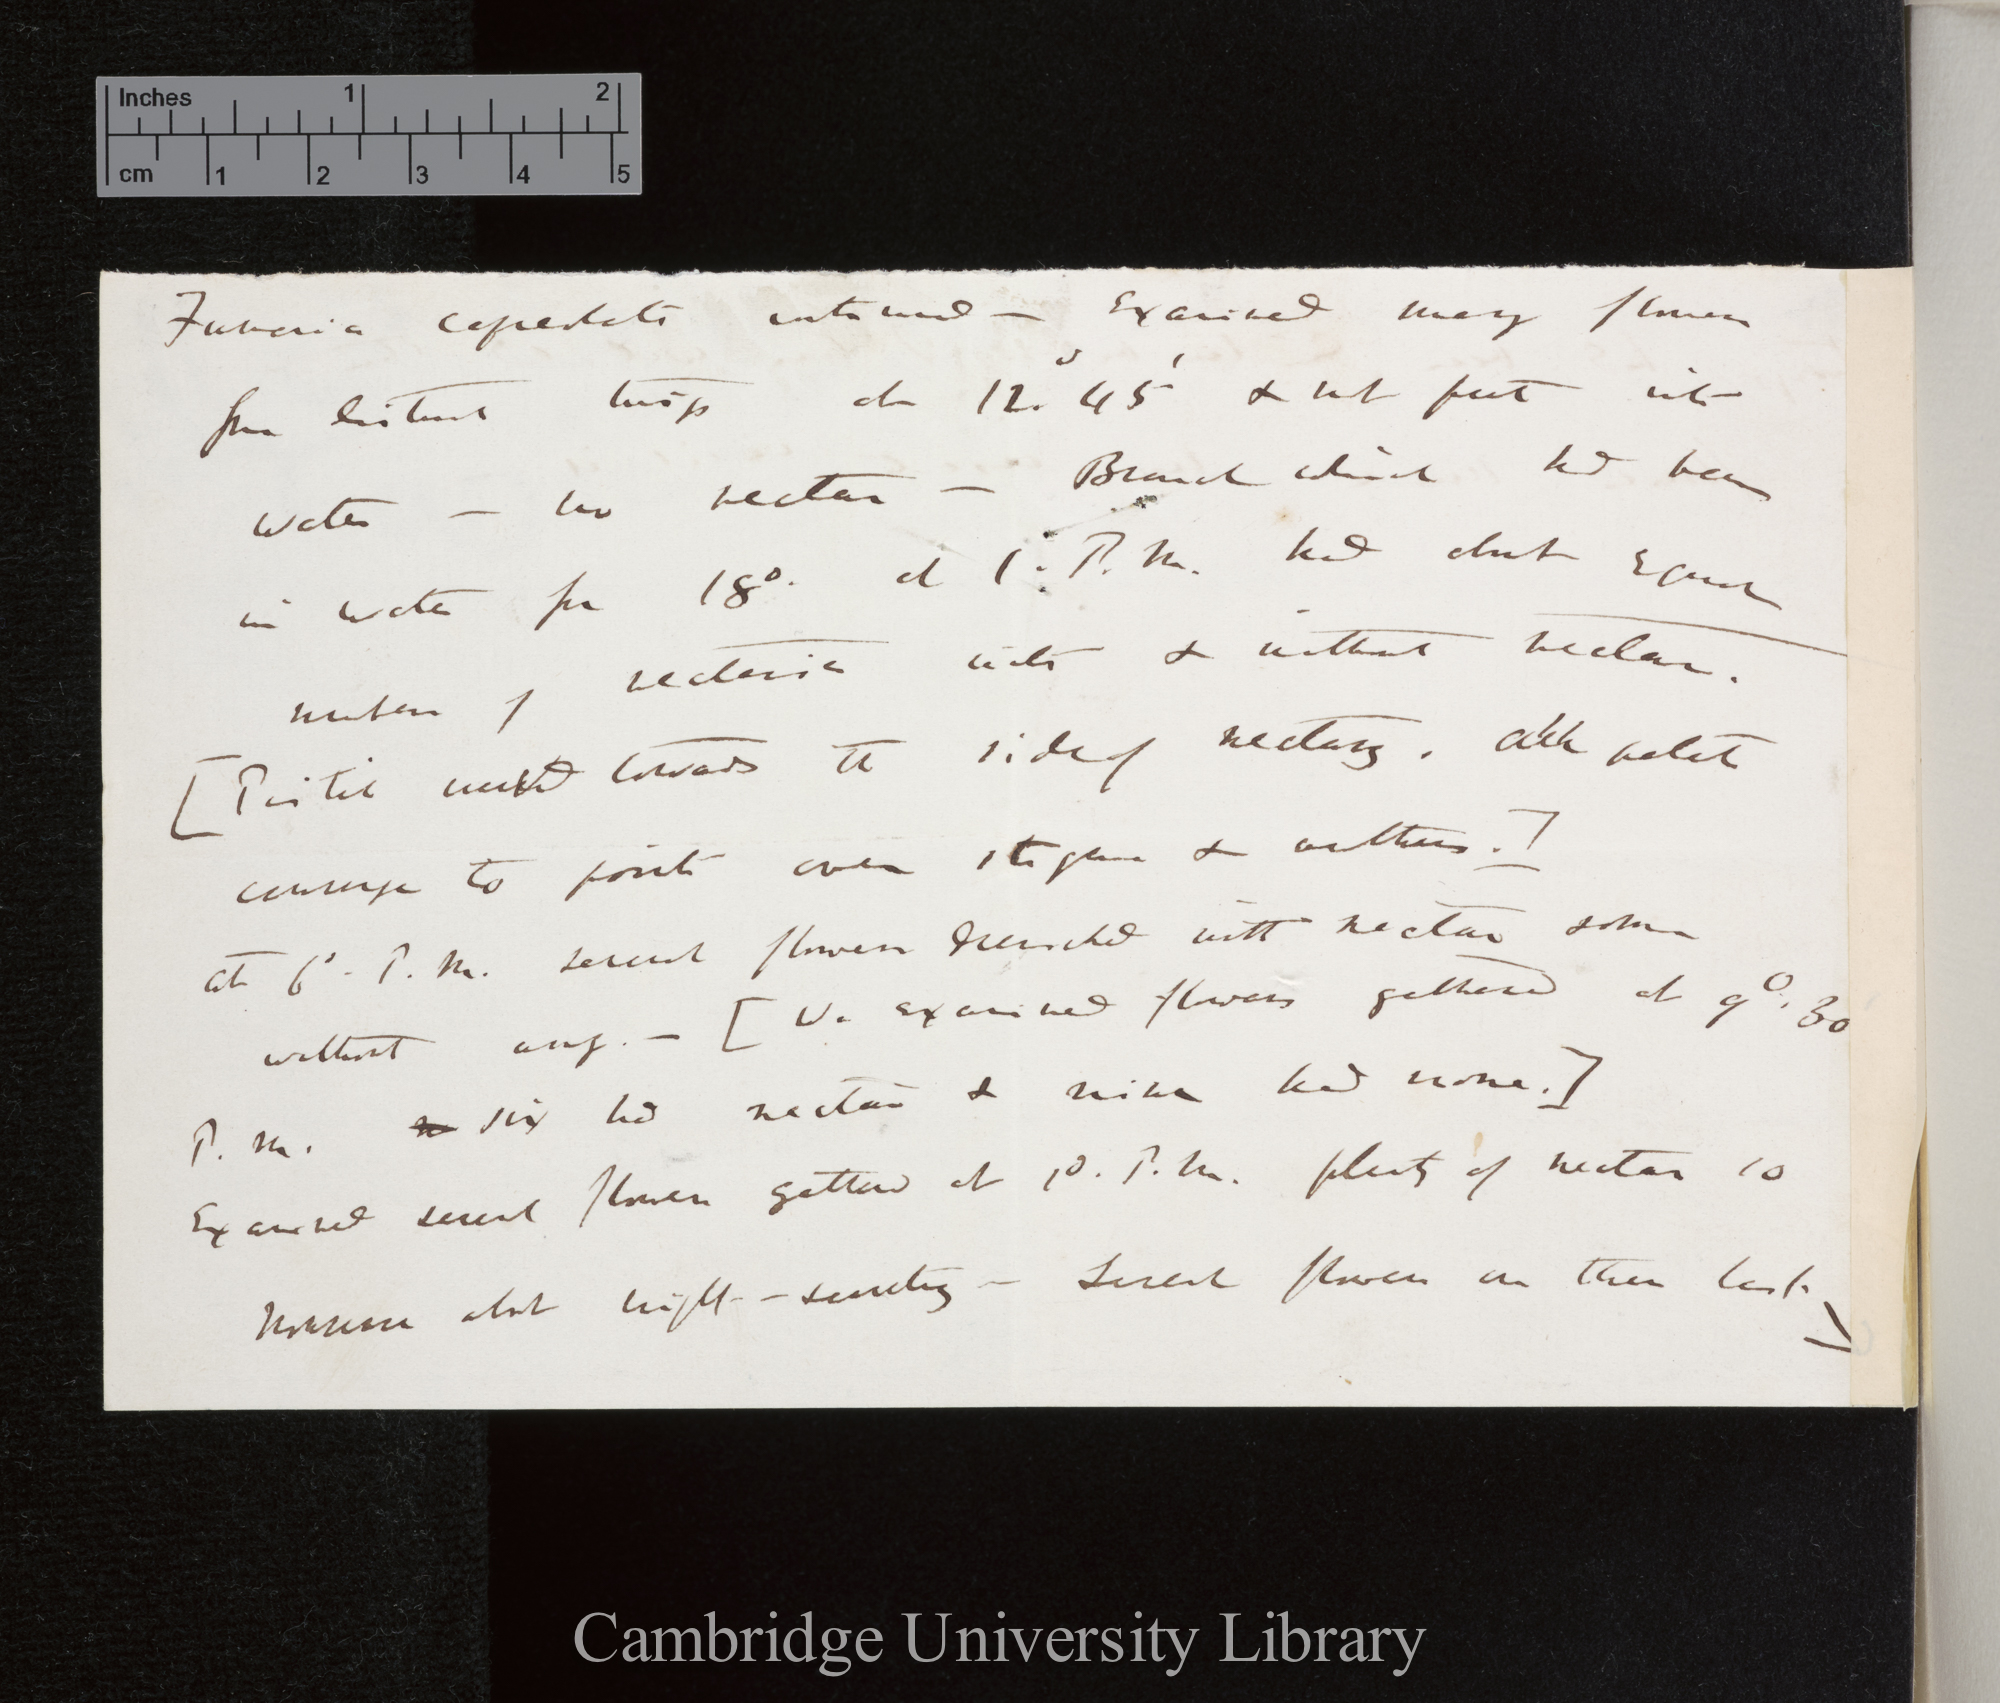 Inches 1 2
cm 1 2 3 4 5
Fumaria capreolata continued — Examined many flowers
from distinct twigs at 12.° 45' & not put into
water — no nectar — Branch which had been
in water for 18°. at 1°. P.M. had about equal
number of nectaries with & without nectar.
[Pistil towards the side of nectary. All petals
converge to point over stigma & anthers.]
at 6°. P.M. several flowers drenched with nectar some
without any. — [We examined flowers gathered at 9°. 30
P.M. six had nectar & nine had none.]
Examined several flowers gathered at 1°. P.M. plenty of nectar so
nonsense about night-secreting — Several flowers on these last
Cambridge University Library